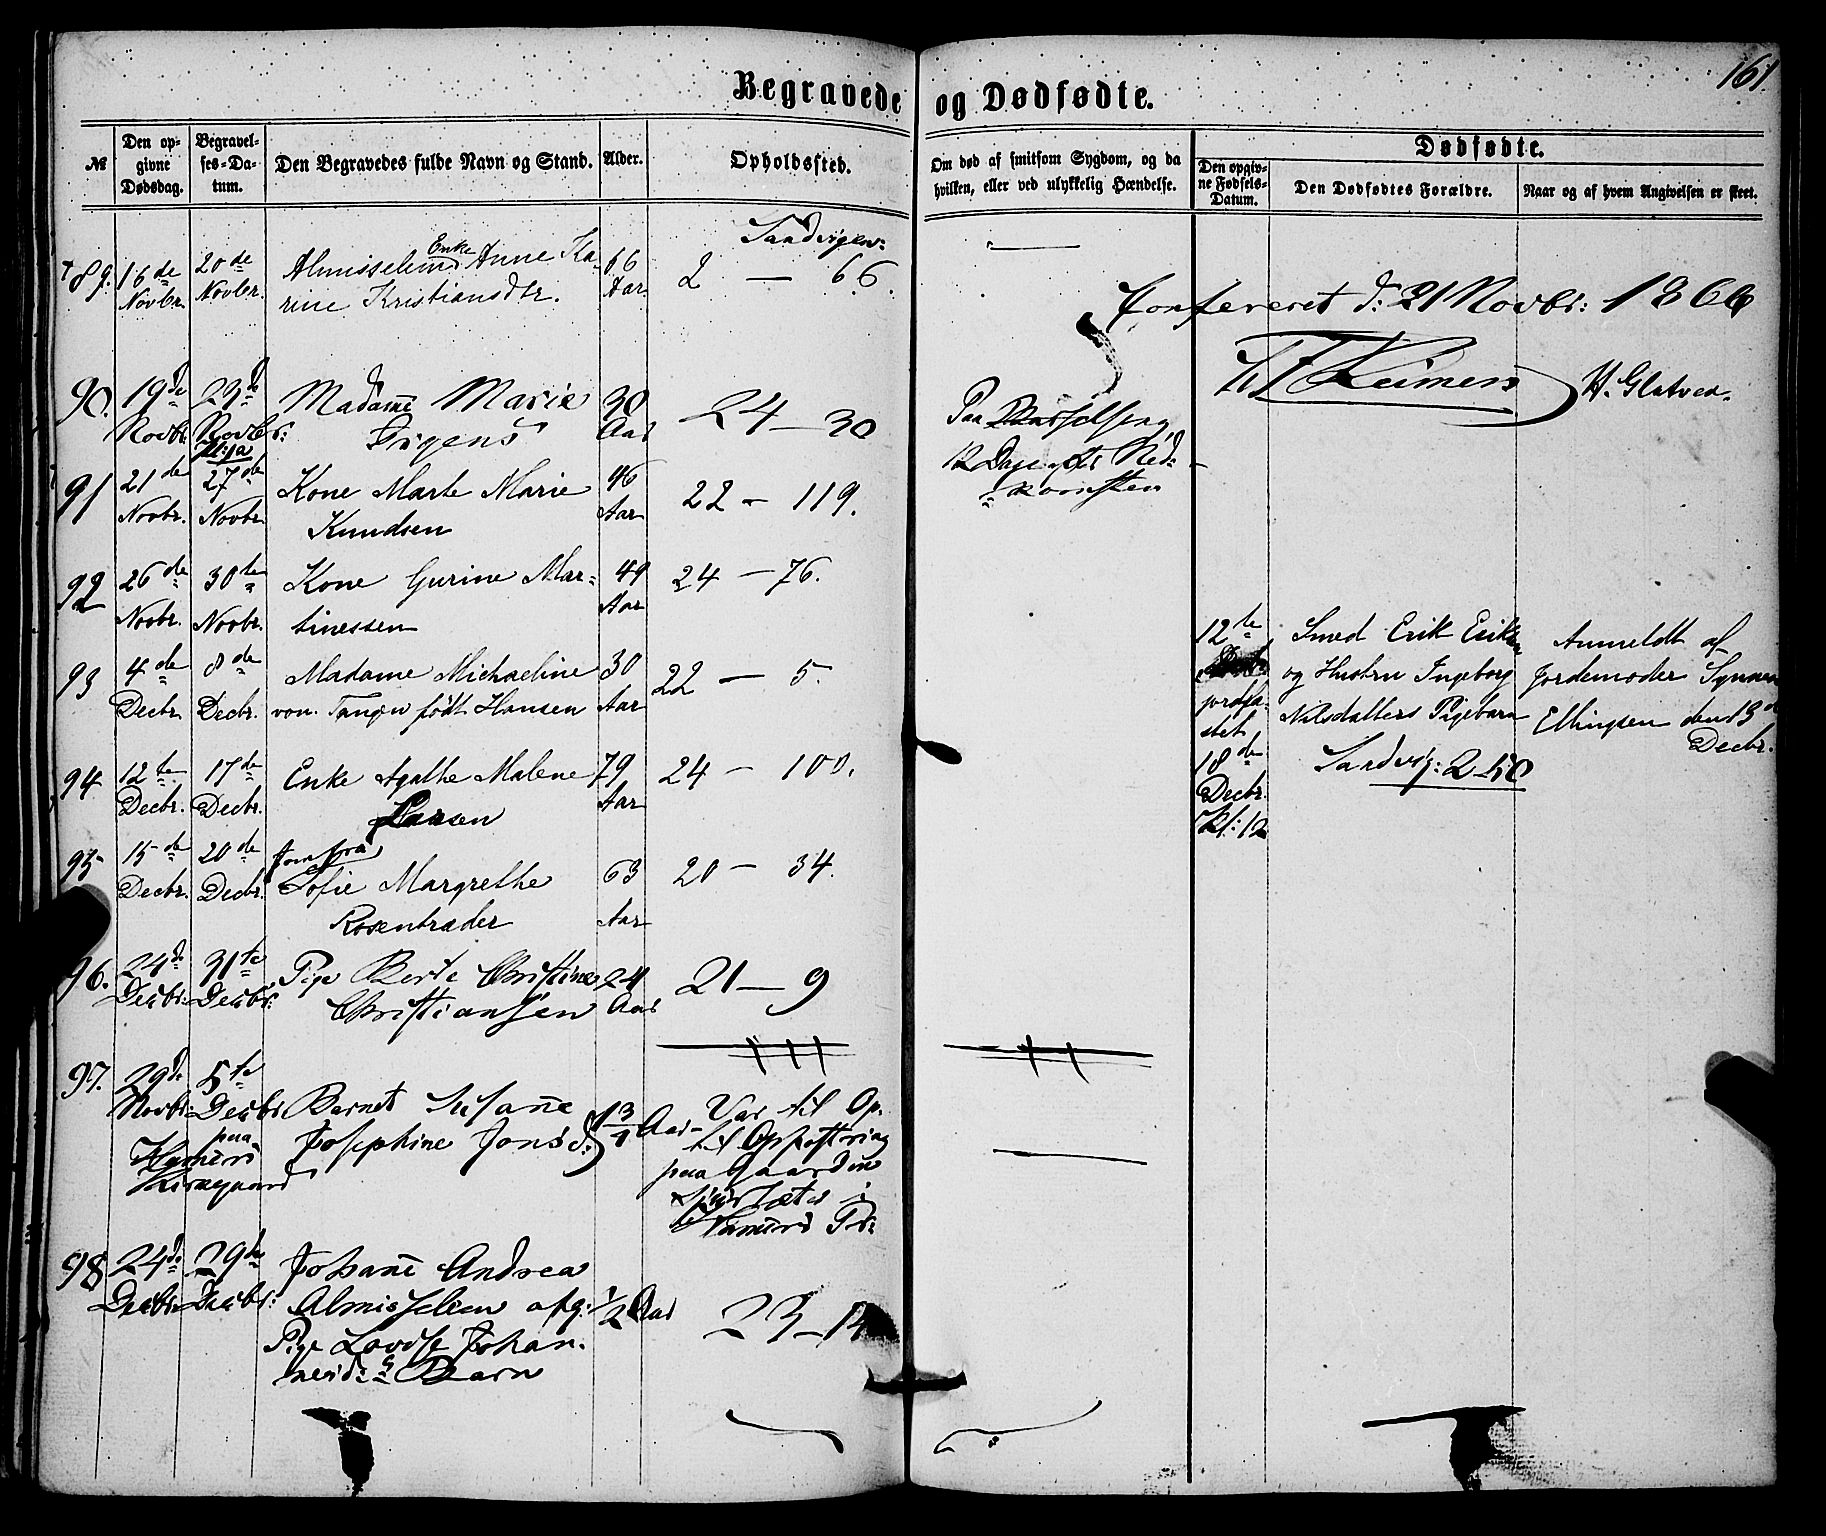 161.
Begravede og Dødfødte.
№
Den opgivne Dødsdag.
Begravelses-Datum.
Den Begravedes fulde Navn og Stand.
Alder.
Opholdssted.
Om død af smitsom Sygdom, og da hvilken, eller ved ulykkelig Hændelse.
Dødfødte.
Den opgivne Fødsels-Datum.
Den Dødfødtes Forældre.
Naar og af hvem Angivelsen er skeet.
Sandvigen:
89. 16de Novbr. 20de Novbr. Enke Anne Ka- 66 Aar 2 — 66.
rine Kristiansdtr.
Confereret d: 21 Novbr: 1866
90. 19de Novbr 23de Novbr: Madame Marie 30 Aar 24 — 30
Paa
12 Dage efter Ned-
komsten
91 21de Novbr. 27de Novbr. Kone Marte Marie 46 Aar 22 — 119.
Knudsen
92 26de Novbr. 30te Novbr. Kone Gurine Mar- 49 Aar 24 — 76.
tinessen
93 4de Decbr. 8de Decbr. Madame Michaeline 30 Aar 22 — 5.
von Tangen født Hansen
94 12te Decbr. 17de Decbr. Enke Agathe Malene 79 Aar 24 — 100.
Larsen
95 15de Decbr. 20de Decbr. Jomfru
Sofie Margrethe 63 Aar 20 — 34.
Rosentræder
96. 24de Decbr. 31te Decbr: Pige Berte Christine 24 Aar 21 — 9
Christiansen
97. 29de Novbr: 5te Decbr Barnet Susanne 1 3/4 Aar
Josephine Jonsd:
paa
Kirkegaard
Var til Op-
til Opfostring
paa Gaarden
98 24de Decbr: 29de Decbr: Johanne Andrea
afg: 1/2 Aar
Pige Lovise Johan-
nesd:s Barn
12te
jordfæ-
stet
18de
Decbr.
Kl: 12
Smed Erik
og Hustru Ingeborg
Nilsdatters Pigebarn
Sandvig: 2-50
Anmeldt af
Jordemoder
Ellingsen den 13de
Decbr.